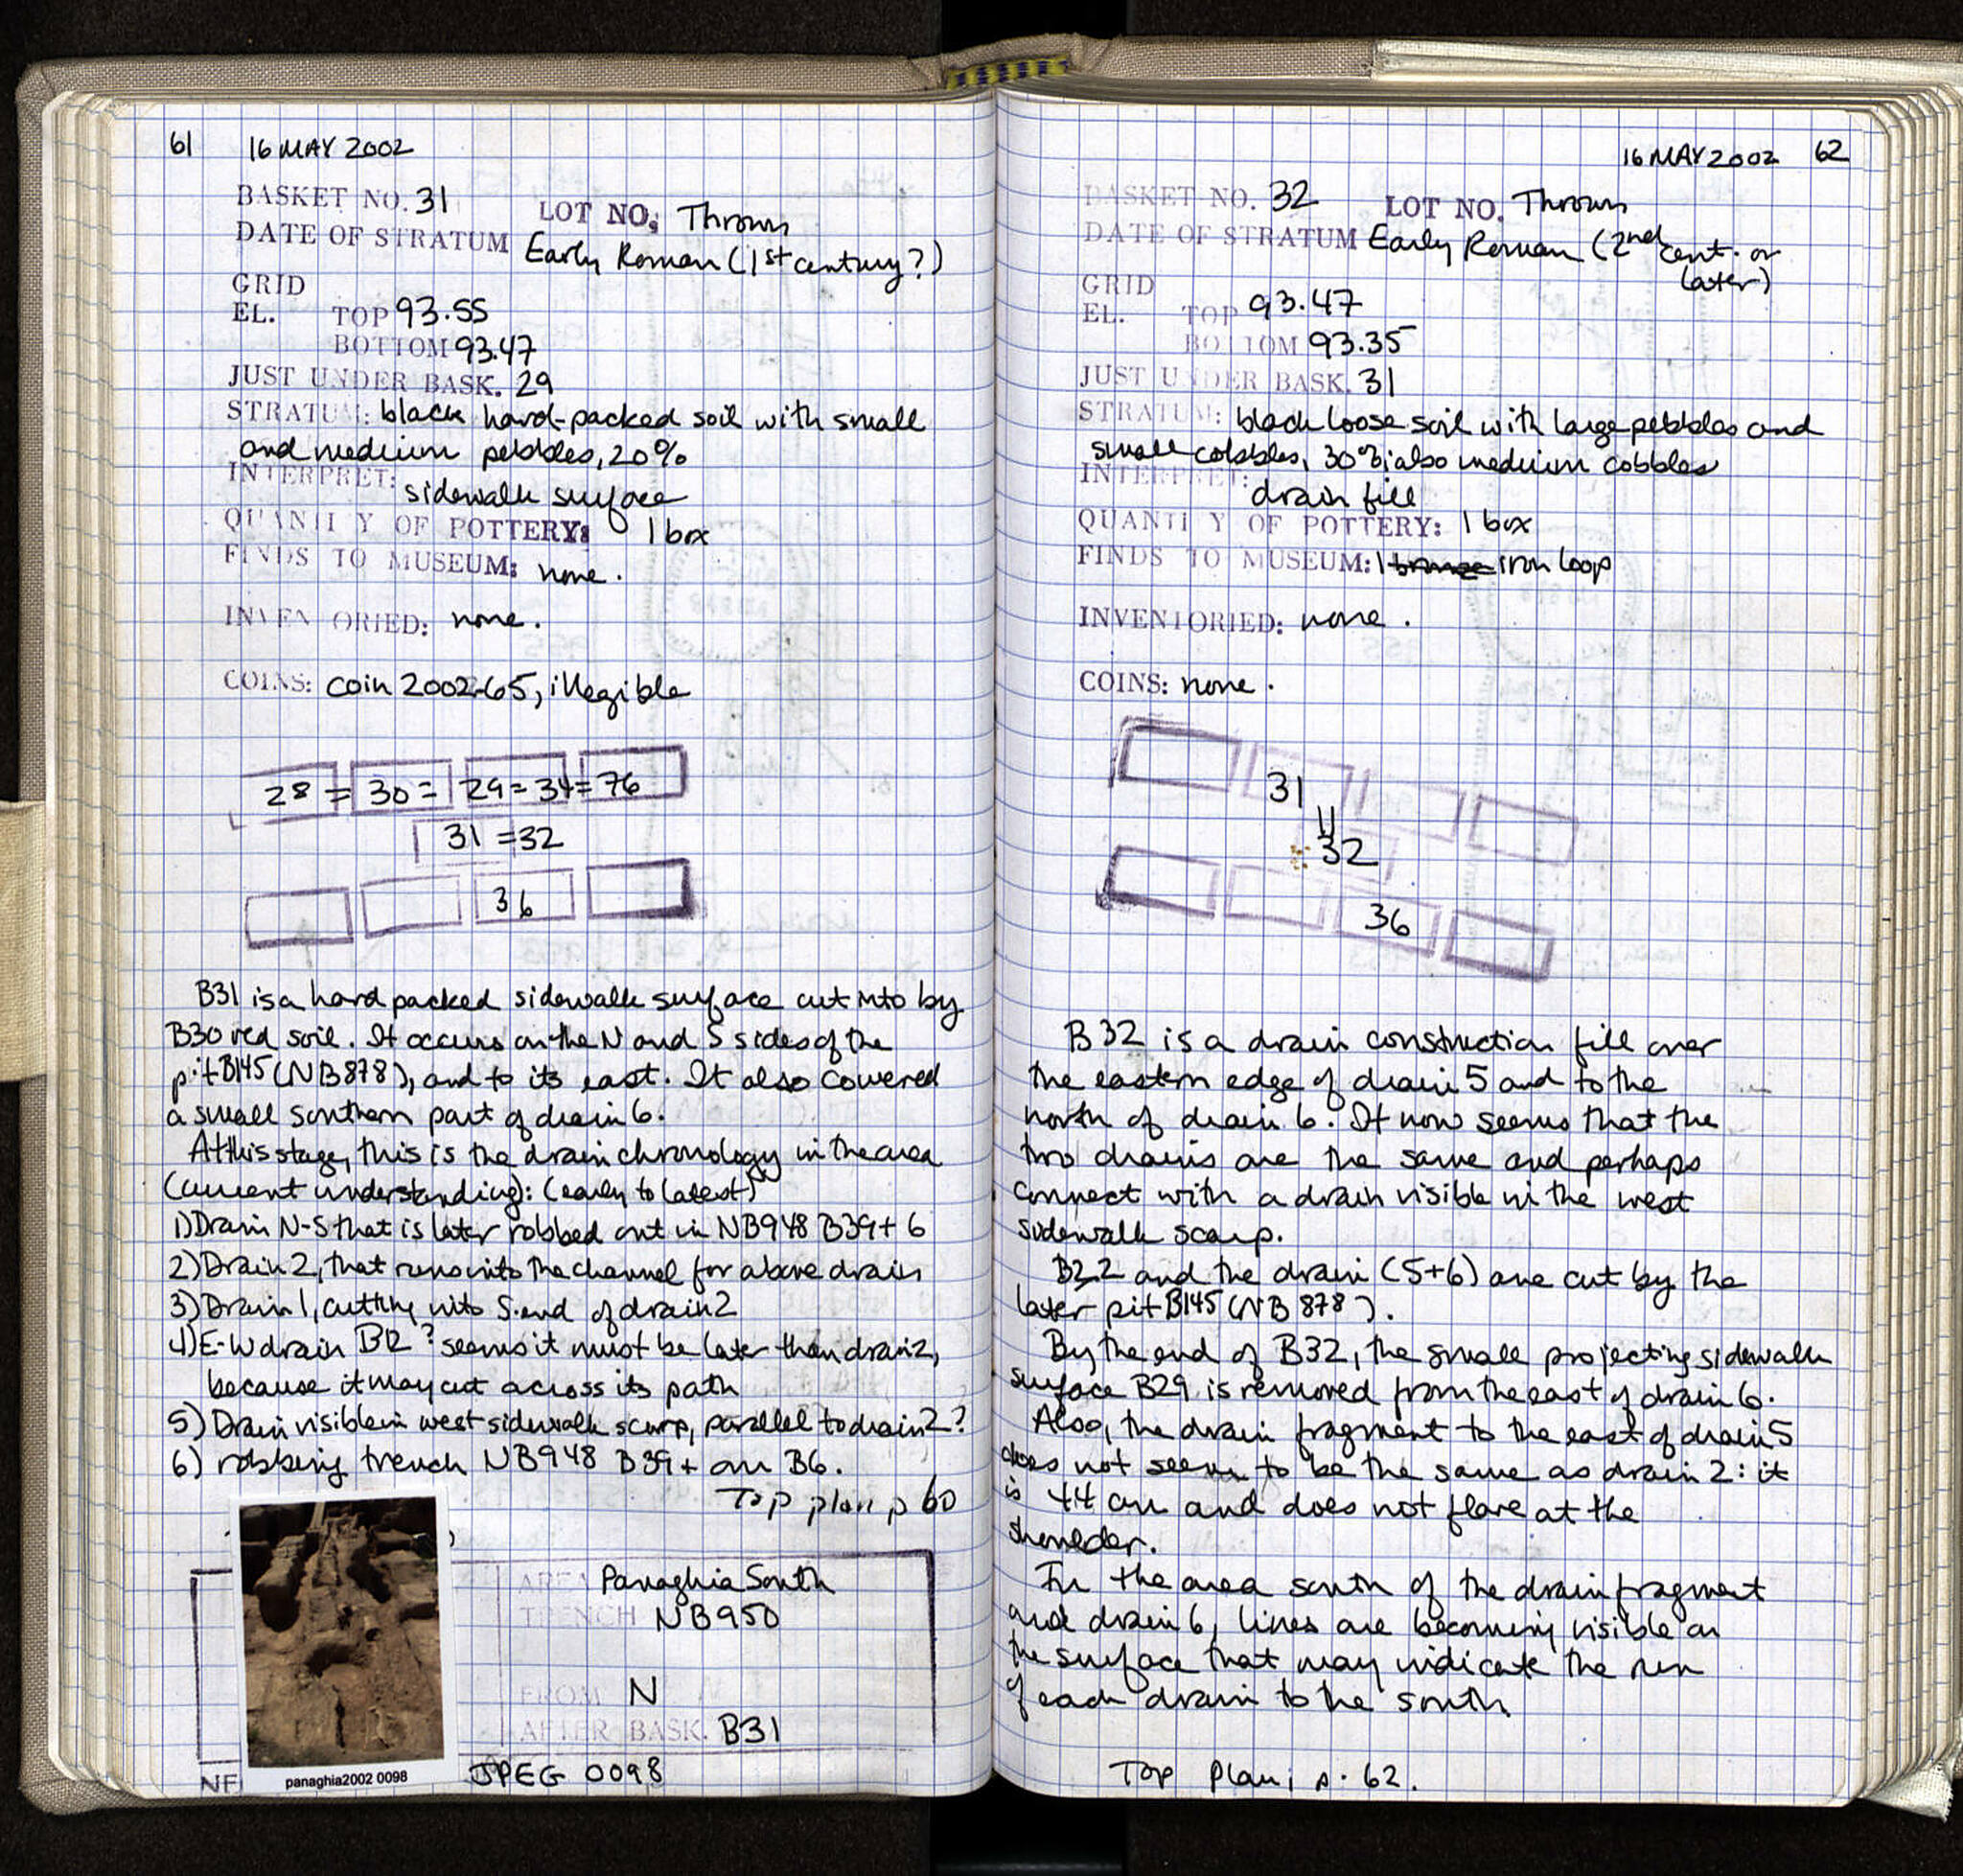 61 16 MAY 2002
BASKET NO. 31 LOT NO. Thrown
DATE OF STRATUM Early Roman (1st century?)
GRID
EL. TOP 93.55
BOTTOM 93.47
JUST UNDER BASK. 29
STRATUM: black hard-packed soil with small
and medium pebbles, 20%
INTERPRET: sidewalk surface
QUANTITY OF POTTERY: 1 box
FINDS TO MUSEUM: none.
INVENTORIED: none.
COINS: coin 2002-65, illegible
28 = 30 = 29 = 34 = 76
31 = 32
36
B31 is a hard packed sidewalk surface cut into by
B30 red soil. It occurs on the N and S sides of the
pit B145 (NB878), and to its east. It also covered
a small southern part of drain 6.
At this stage, this is the drain chronology in the area
(current understanding): (early to latest)
1) Drain N-S that is later robbed out in NB948 B39 + 6
2) Drain 2, that runs into the channel for above drain
3) Drain 1, cutting into S. end of drain 2
4) E-W drain B12? seems it must be later than drain 2,
because it may cut across its path
5) Drain visible in west sidewalk scarp, parallel to drain 2?
6) robbing trench NB948 B39 + our B6.
Top plan p 60
AREA Panaghia South
TRENCH NB950
FROM N
AFTER BASK. B31
NF
panaghia2002 0098
JPEG 0098
16 MAY 2002 62
BASKET NO. 32 LOT NO. Thrown
DATE OF STRATUM Early Roman (2nd cent. or
later)
GRID
EL. TOP 93.47
BOTTOM 93.35
JUST UNDER BASK. 31
STRATUM: black loose soil with large pebbles and
small cobbles, 30%; also medium cobbles
INTERPRET: drain fill
QUANTITY OF POTTERY: 1 box
FINDS TO MUSEUM: 1 bronze iron loop
INVENTORIED: none.
COINS: none.
31
=
32
36
B32 is a drain construction fill over
the eastern edge of drain 5 and to the
north of drain 6. It now seems that the
two drains are the same and perhaps
connect with a drain visible in the west
sidewalk scarp.
B32 and the drain (5+6) are cut by the
later pit B145 (NB 878).
By the end of B32, the small projecting sidewalk
surface B29 is removed from the east of drain 6.
Also, the drain fragment to the east of drain 5
does not seem to be the same as drain 2: it
is 44 cm and does not flare at the
shoulder.
In the area south of the drain fragment
and drain 6, lines are becoming visible on
the surface that may indicate the run
of each drain to the south.
Top Plan, p. 62.